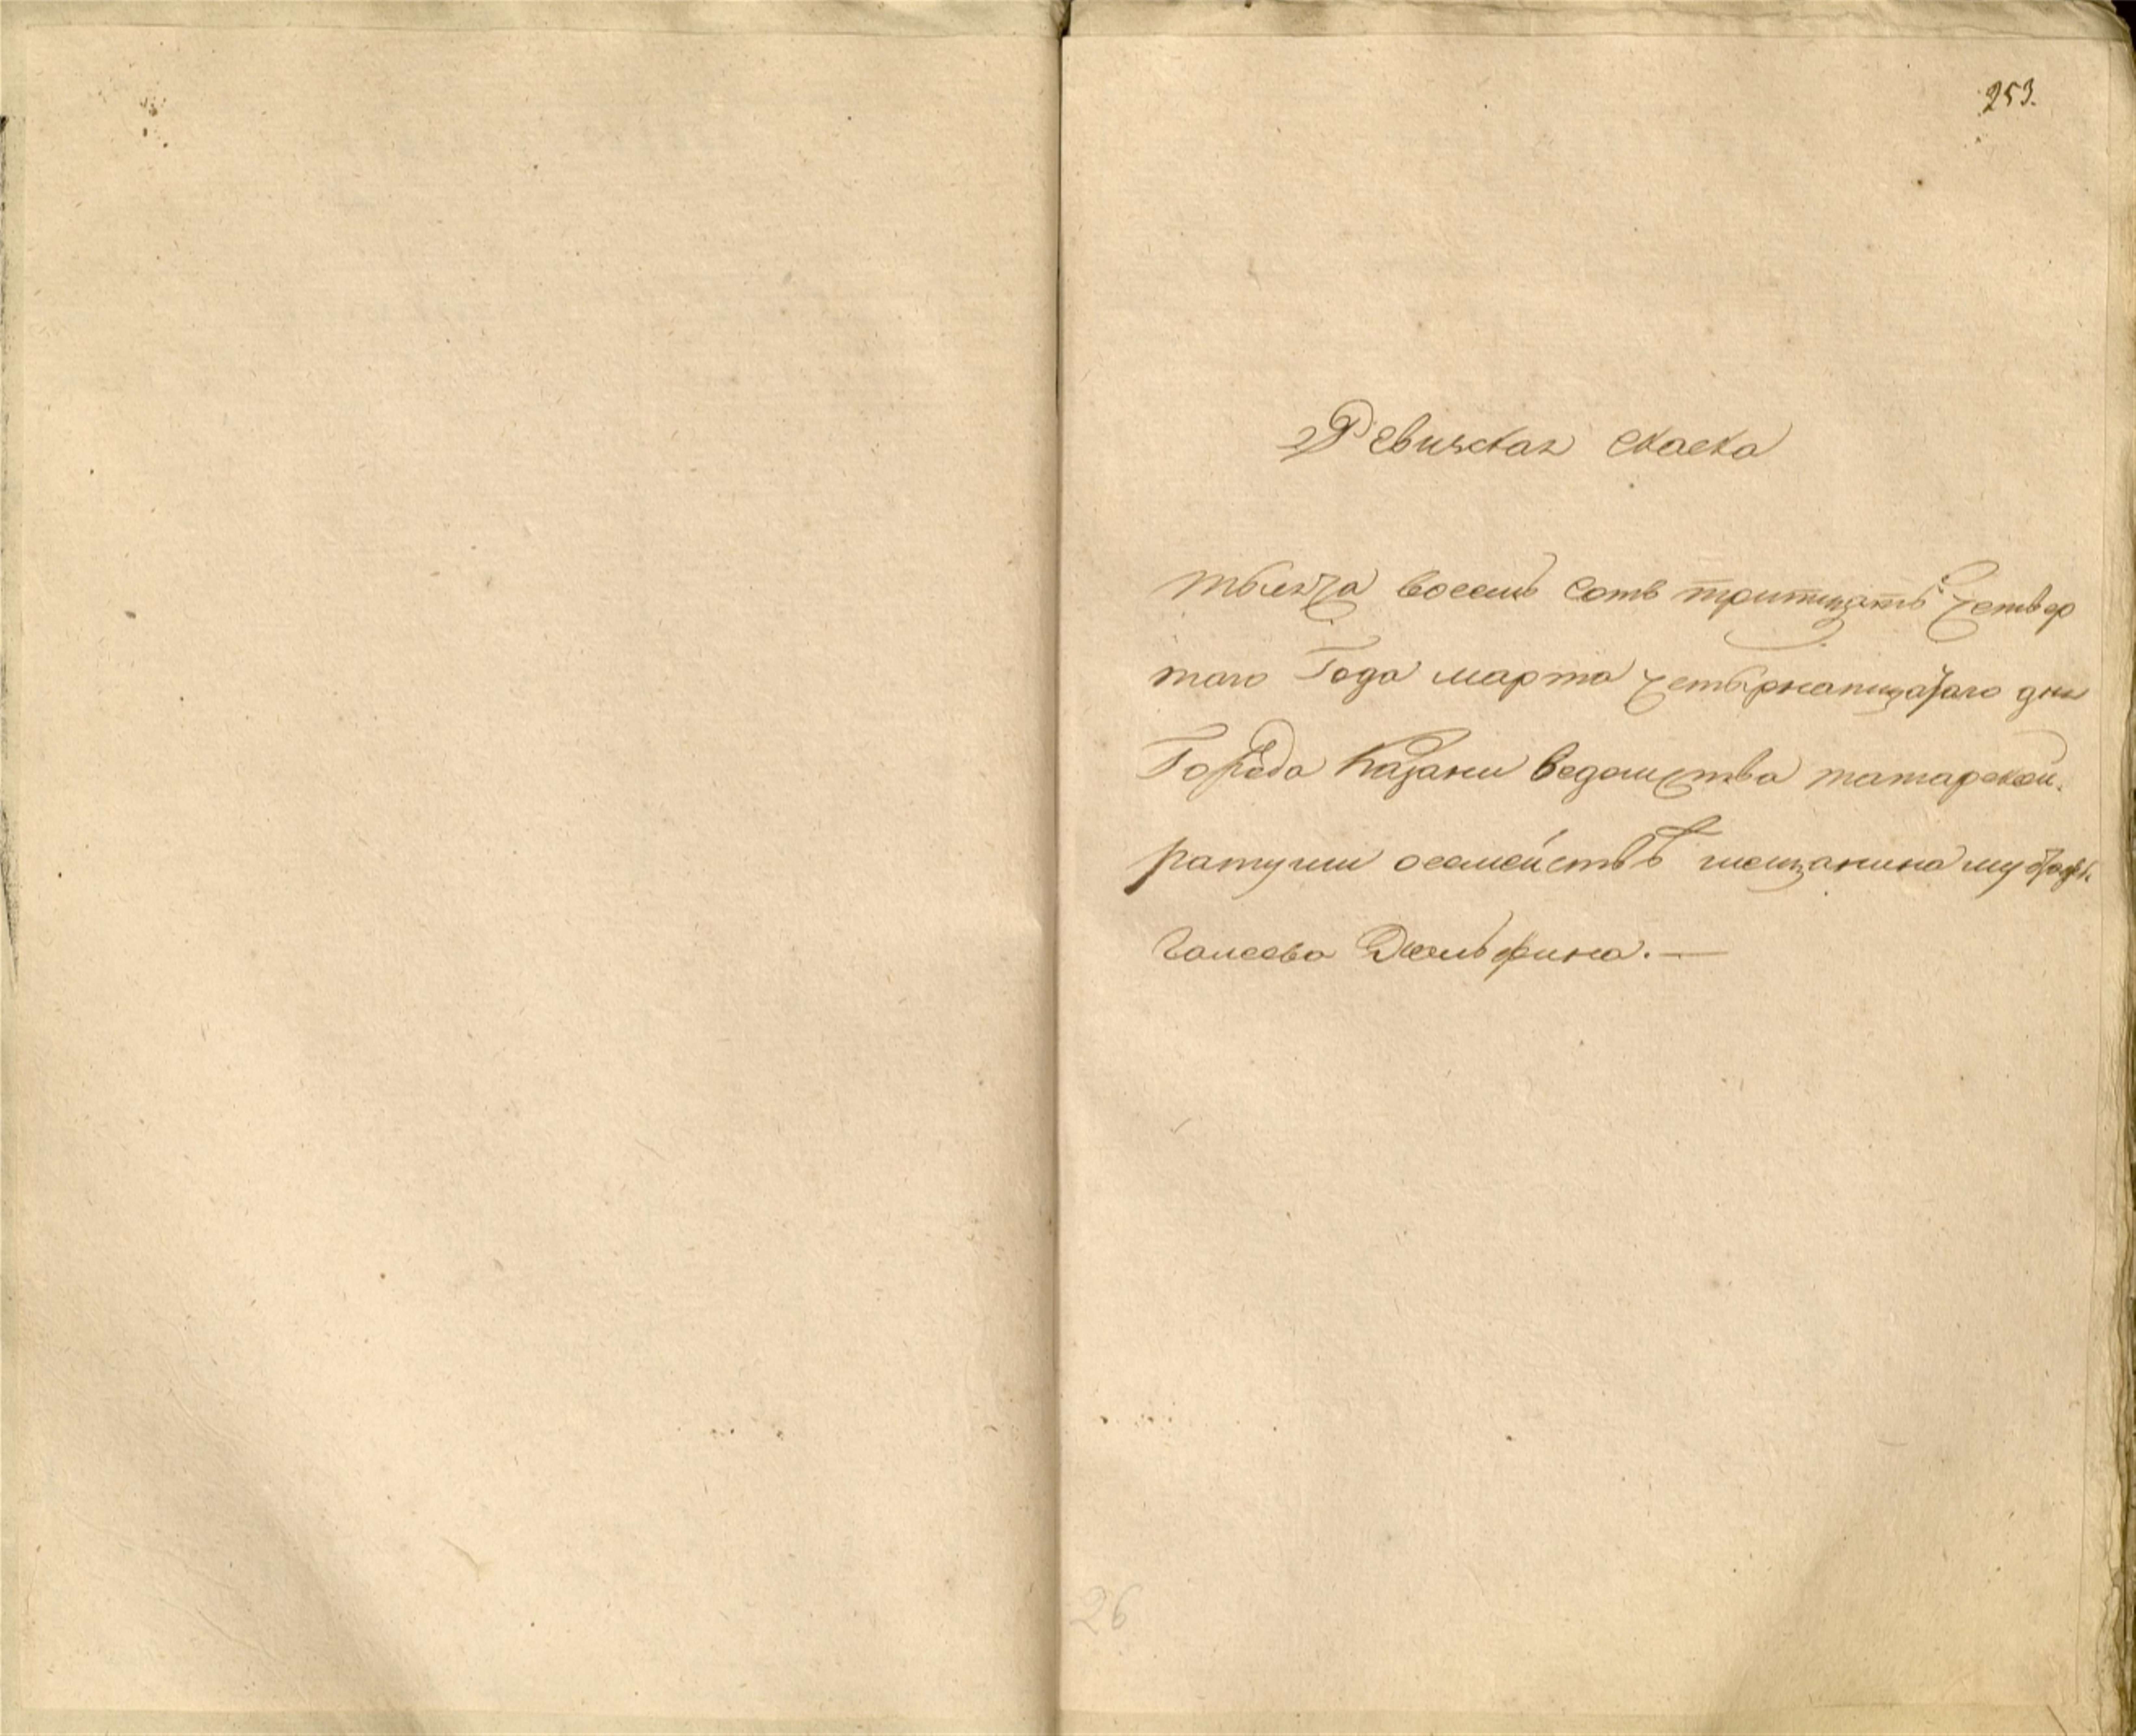 253.
Ревизская скаска
тысяча восемь сотъ тритцать четвер
таго Года марта четырнатцатаго дня
Города Казани ведомства татарской
ратуши осемействѣ мещанина
26